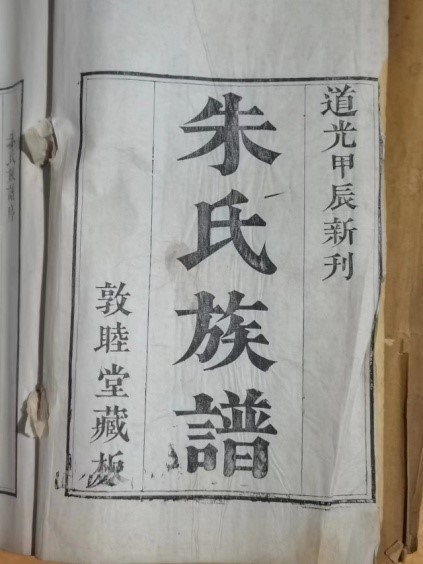 道光甲辰新刊
朱氏族譜
敦睦堂藏板